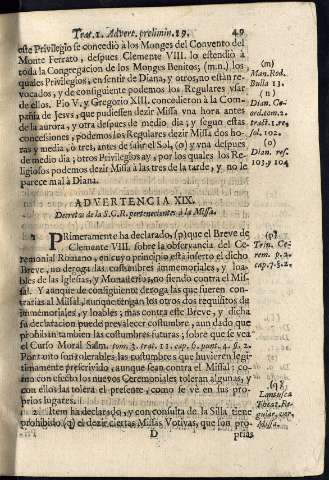 Trat. 1. Advert. prelimin. 19. 49
este Privilegio se concediò à los Monges del Convento del
Monte Ferrato, despues Clemente VIII. lo estendiò à
toda la Congregacion de los Monges Benitos, (m.n.) los
quales Privilegios, en sentir de Diana, y otros, no están re-
vocados, y de consiguiente podemos los Regulares vsar
de ellos. Pio V. y Gregorio XIII. concedieron à la Com-
pañia de Jesvs, que pudiessen dezir Missa vna hora antes
de la aurora, y otra despues de medio dia, y segun estas
concessiones, podemos los Regulares dezir Missa dos ho-
ras y media, ò tres, antes de salir el Sol, (o) y vna despues
de medio dia; otros Privilegios ay, por los quales los Re-
ligiosos podemos dezir Missa à las tres de la tarde, y no le
parece mal à Diana.
(m)
Man. Rod.
Bulla 13.
(n)
Dian. Co-
ord. tom. 2.
trat. 1. re-
sol. 102.
(o)
Dian. res.
103. y 104
ADVERTENCIA XIX.
Decretos de la S.C.R. pertenecientes à la Missa.
1 PRimeramente ha declarado, (p) que el Breve de
Clemente VIII. sobre la observancia del Ce-
remonial Romano, en cuyo principio està inserto el dicho
Breve, no deroga las costumbres immemoriales, y loa-
bles de las Iglesias, y Monasterios, no siendo contra el Mis-
sal. Y aunque de consiguiente deroga las que fueren con-
trarias al Missal, aunque tengan los otros dos requisitos de
immemoriales, y loables; mas contra este Breve, y dicha
su declaracion puede prevalecer costumbre, aun dado que
prohiban tambien las costumbres futuras; sobre que se vea
el Curso Moral Salm. tom. 3. trat. 11. cap. 6. punt. 4. §. 2.
Por tanto son tolerables las costumbres que huvieren legiti-
mamente prescrivido, aunque sean contra el Missal: co-
mo con efecto los nuevos Ceremoniales toleran algunas, y
con ellos las tolera el presente, como se vè en sus pro-
prios lugares.
(p)
Trin. Ce-
rem. p. 2.
cap. 7. §. 2.
2 Item ha declarado, y con consulta de la Silla tiene
prohibido (q) el dezir ciertas Missas Votivas, que son pro-
(q)
Lantusca
Theat. Re-
gular. ver.
Missa.
D prias